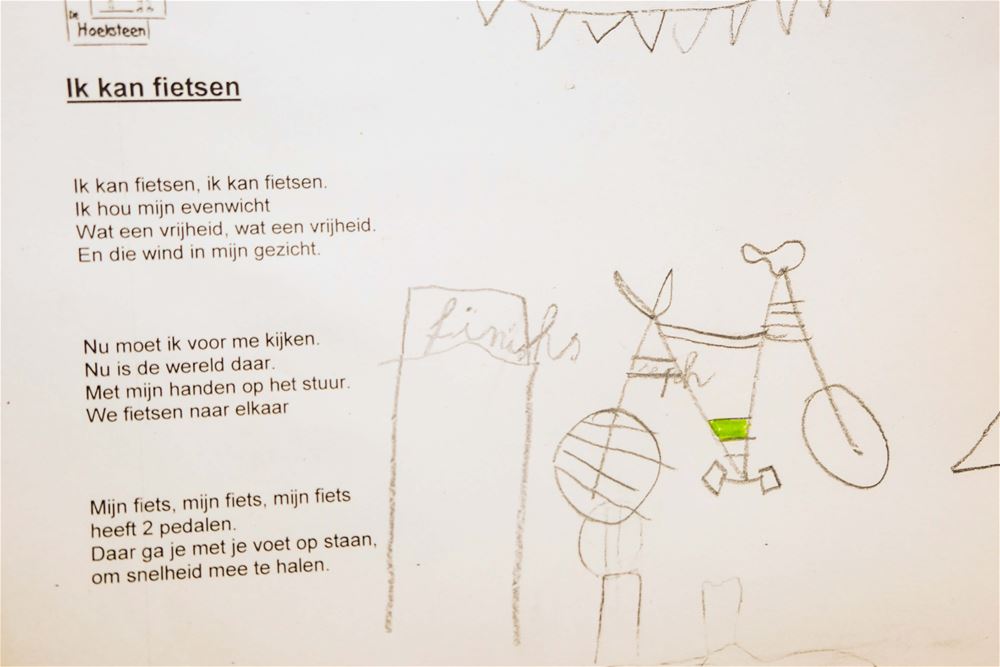 De
Hoeksteen
Ik kan fietsen
Ik kan fietsen, ik kan fietsen.
Ik hou mijn evenwicht
Wat een vrijheid, wat een vrijheid.
En die wind in mijn gezicht.
Nu moet ik voor me kijken.
Nu is de wereld daar.
Met mijn handen op het stuur.
We fietsen naar elkaar
Mijn fiets, mijn fiets, mijn fiets
heeft 2 pedalen.
Daar ga je met je voet op staan,
om snelheid mee te halen.
finishs